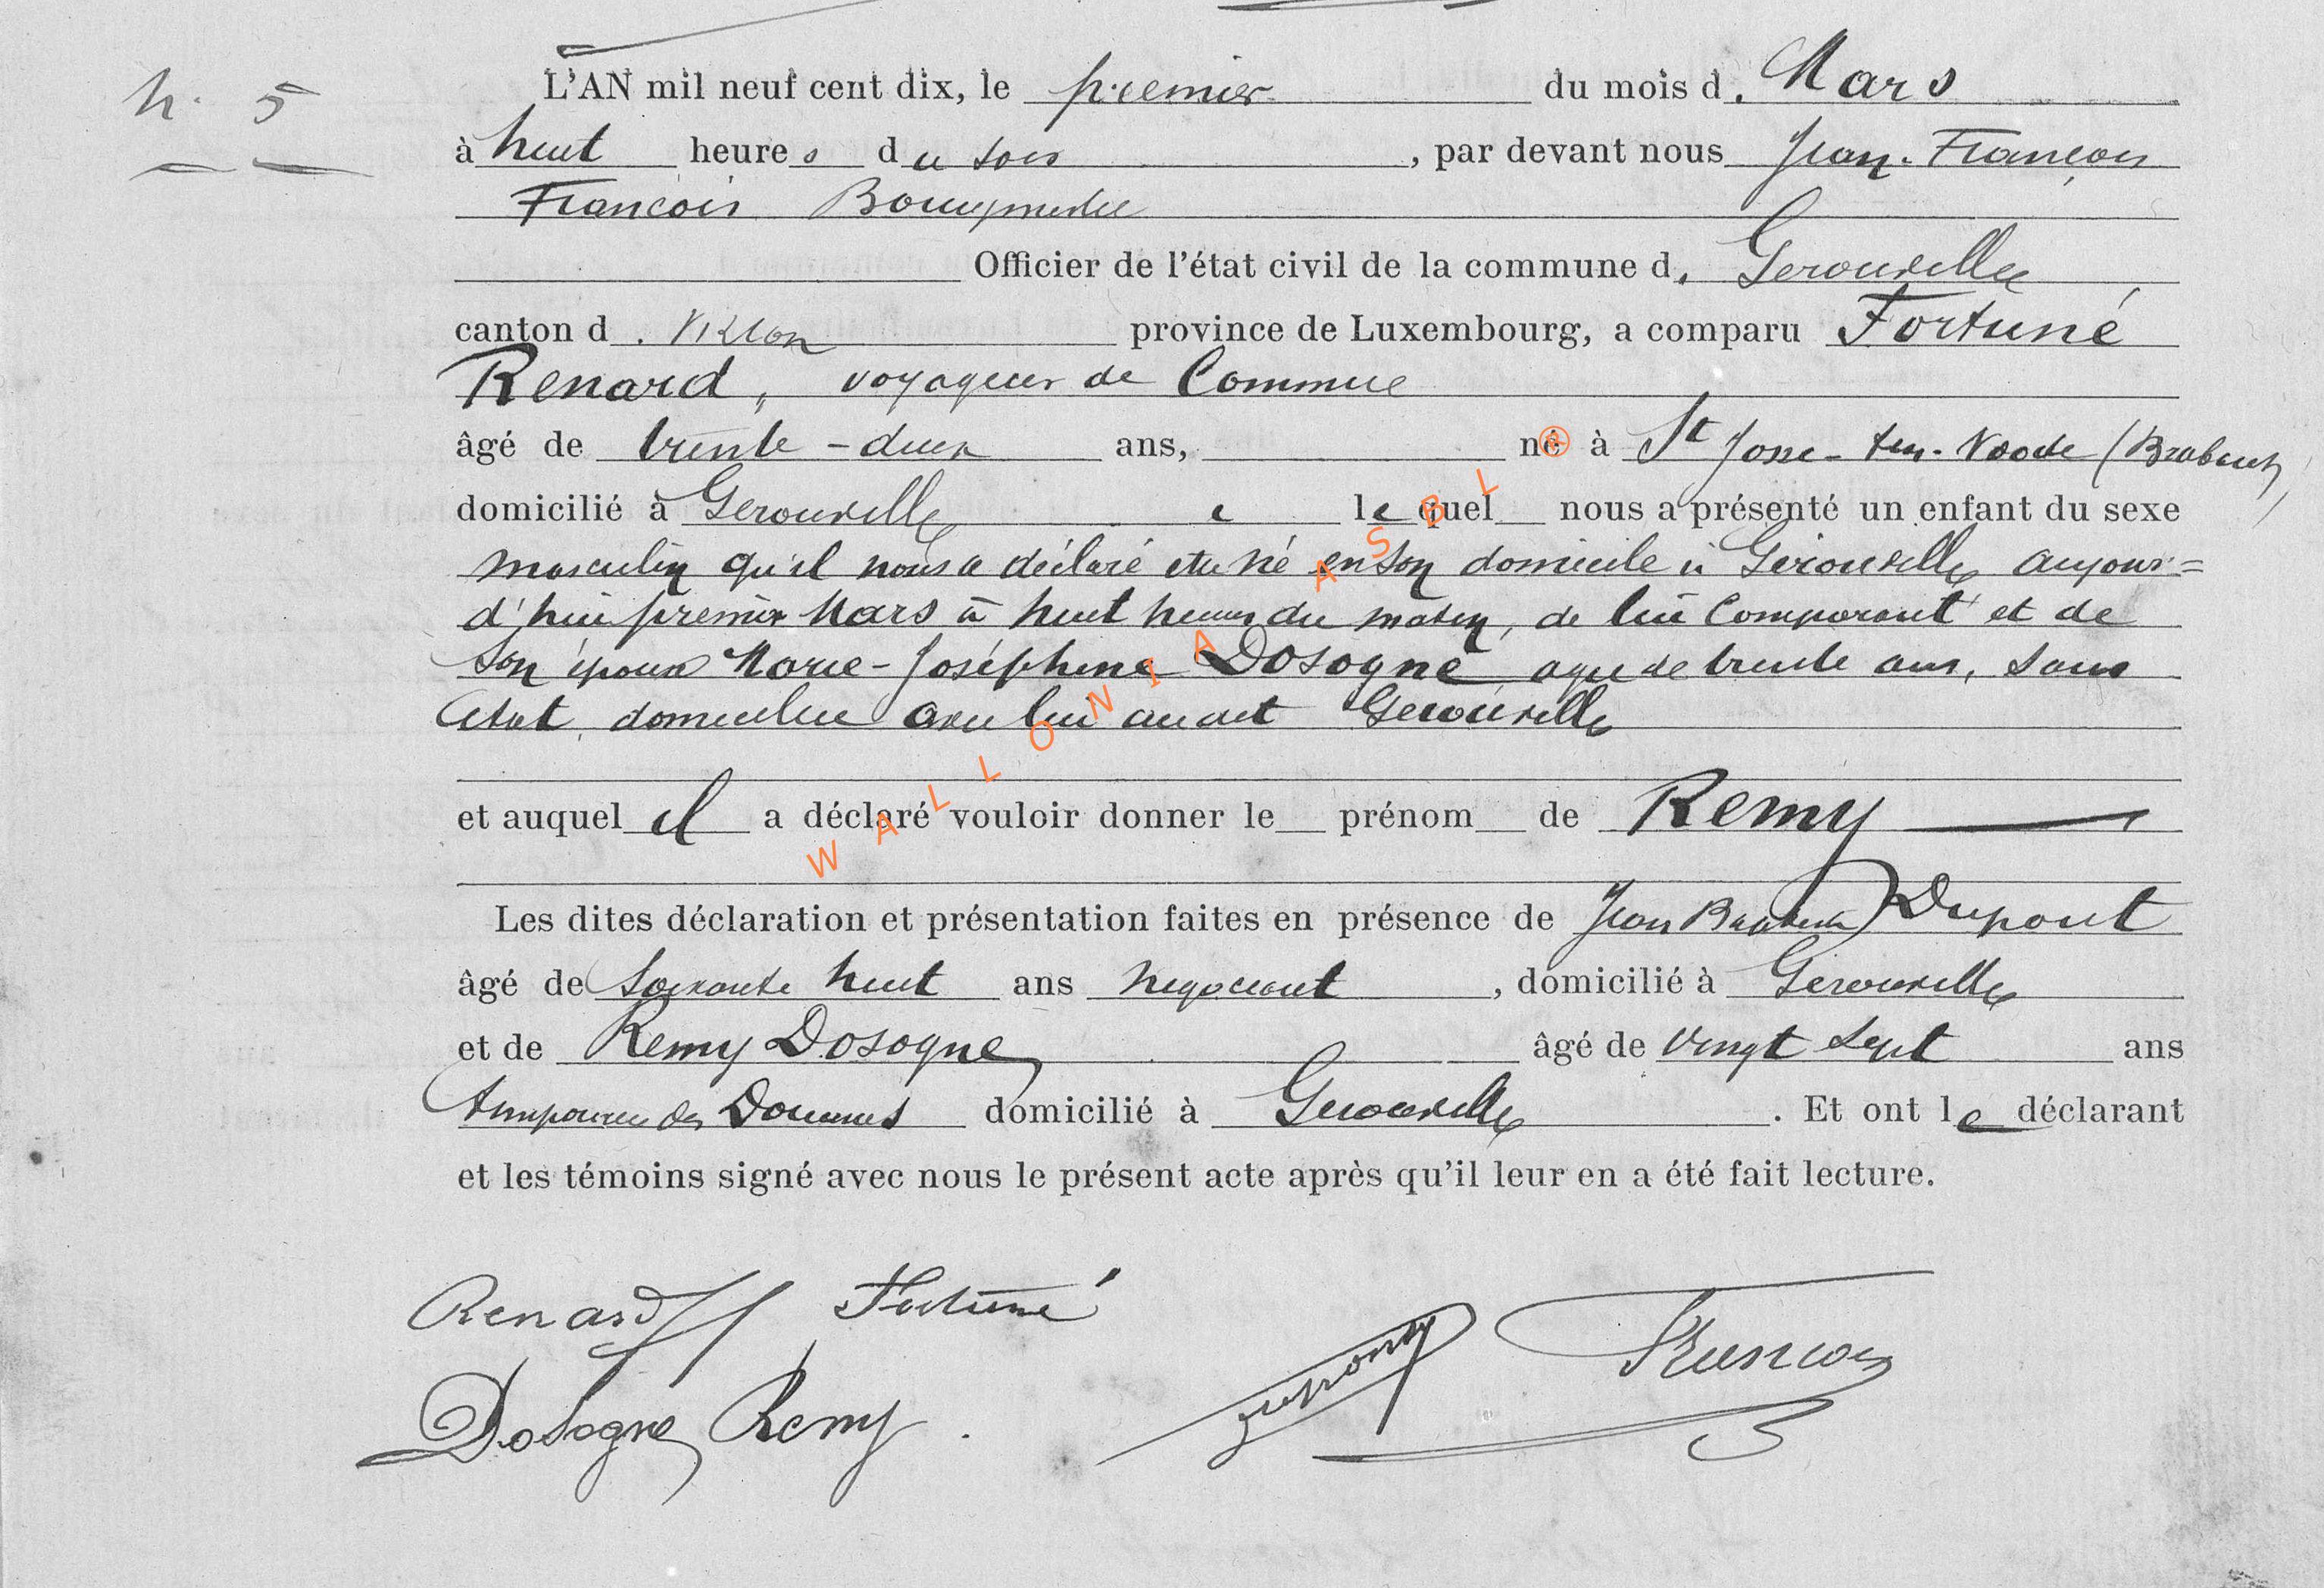 n. 5
L'AN mil neuf cent dix, le premier du mois d. Mars
à huit heures du soir, par devant nous Jean-François
François
Officier de l'état civil de la commune d. Gerouville
canton d. Virton province de Luxembourg, a comparu Fortuné
Renard, voyageur de Commerce
âgé de trente-deux ans, né à St Josse-ten-Noode (Brabant)
domicilié à Gerouville lequel nous a présenté un enfant du sexe
masculin qu'il nous a déclaré être né en son domicile à Gérouville aujour=
d'hui premier Mars à huit heures du matin, de lui Comparant et de
son épouse Marie-Joséphine Dosogne, agée de trente ans, sans
état, domiciliée avec lui audit Gerouville
et auquel il a déclaré vouloir donner le prénom de Remy
Les dites déclaration et présentation faites en présence de Jean Baptiste Dupont
âgé de soixante huit ans negociant, domicilié à Gérouville
et de Remy Dosogne âgé de vingt sept ans
des Douanes domicilié à Gerouville. Et ont le déclarant
et les témoins signé avec nous le présent acte après qu'il leur en a été fait lecture.
Renard Fortuné
Dupont
François
Dosogne Remy
WALLONIA ASBL ®